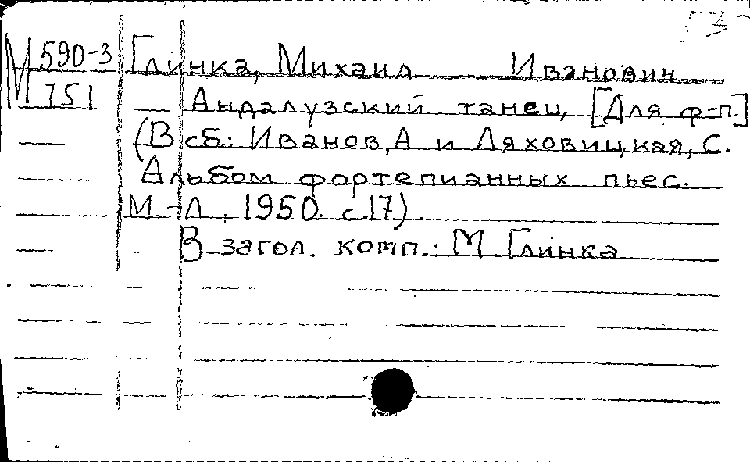 М 590-3 Глинка, Михаил Иванович
М 751 Андалузский танец, [Для ф-п.]
(В сб: Иванов, А и Ляховицкая, С.
Альбом фортепианных пьес.
М-Л, 1950. с.17).
В загол. комп.: М Глинка